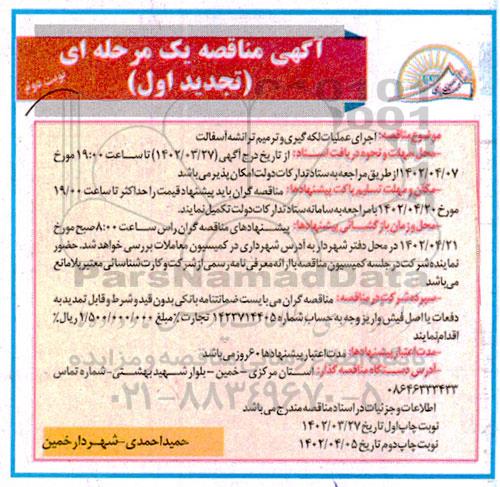 آگهی مناقصه یک مرحله ای
(تجدید اول)
نوبت دوم
موضوع مناقصه: اجرای عملیات لکه گیری و ترمیم ترانشه آسفالت
-محل مهلت و نحوه دریافت اسناد: از تاریخ درج آگهی (۱۴۰۲/۰۳/۲۷) تا ساعت ۱۹:۰۰ مورخ
۱۴۰۲/۰۴/۰۷ از طریق مراجعه به ستاد تدارکات دولت امکان پذیر می باشد
-مکان و مهلت تسلیم پاکت پیشنهادها: مناقصه گران باید پیشنهاد قیمت را حداکثر تا ساعت ۱۹/۰۰
مورخ ۱۴۰۲/۰۴/۲۰ با مراجعه به سامانه ستاد تدارکات دولت تکمیل نمایند.
-محل و زمان بازگشائی پیشنهادها: پیشنهادهای مناقصه گران راس ساعت ۸:۰۰ صبح مورخ
۱۴۰۲/۰۴/۲۱ در محل دفتر شهردار به آدرس شهرداری در کمیسیون معاملات بررسی خواهد شد. حضور
نماینده شرکت در جلسه کمیسیون مناقصه با ارائه معرفی نامه رسمی از شرکت و کارت شناسائی معتبر بلامانع
می باشد
-سپرده شرکت در مناقصه: مناقصه گران می بایست ضمانتنامه بانکی بدون قید و شرط و قابل تمدید به
دفعات یا اصل فیش واریز وجه به حساب شماره ۱۴۲۳۷۱۴۴۰۵ تجارت؛ مبلغ ۱/۵۰۰/۰۰۰/۰۰۰ ریال؛
اقدام نمایند
-مدت اعتبار پیشنهادها: مدت اعتبار پیشنهادها ۶۰ روز می باشد
-آدرس دستگاه مناقصه گذار: استان مرکزی -خمین - بلوار شهید بهشتی - شماره تماس
۰۸۶۴۶۳۳۳۴۳۳
اطلاعات و جزئیات در اسناد مناقصه مندرج می باشد
نوبت چاپ اول تاریخ ۱۴۰۲/۰۳/۲۷
نوبت چاپ دوم تاریخ ۱۴۰۲/۰۴/۰۵
حمید احمدی - شهردار خمین
ParsNamadData
۰۲۱-۸۸۳۴۹۶۷۰-۵